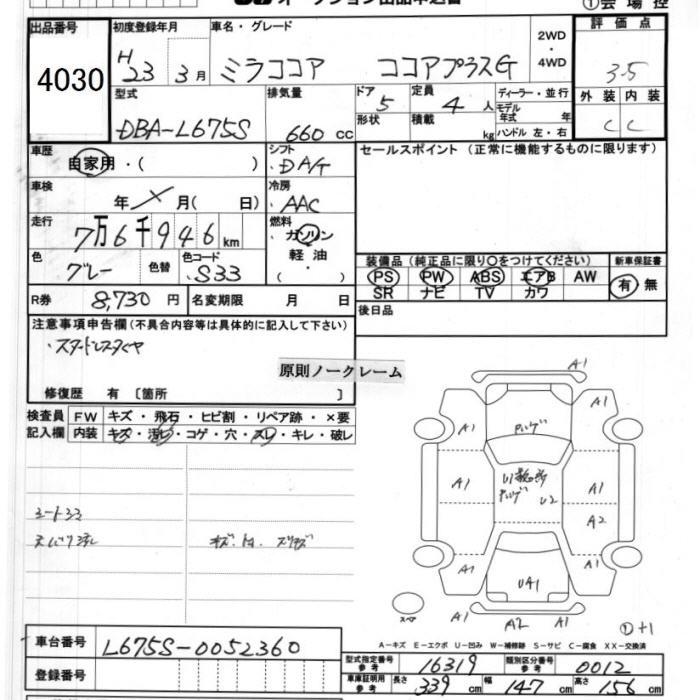 オークション出品申込書
①会場控
出品番号 4030
初度登録年月 H23 3月
車名・グレード ミラココア ココアプラスG
2WD・4WD
評価点 3.5
型式 DBA-L675S
排気量 660 cc
ドア 5
形状
定員 4 人
積載 kg
ディーラー・並行
モデル年式 年
ハンドル 左・右
外装 C 内装 C
車歴 自家用・( )
シフト DA/T
セールスポイント (正常に機能するものに限ります)
車検 年 月( 日)
冷房 AAC
走行 7万6千946km
燃料 ガソリン 軽油 ・( )
色 グレー 色替 色コード S33
装備品 (純正品に限り○をつけてください)
PS PW ABS エアB AW
SR ナビ TV カワ
新車保証書 有 無
R券 8,730 円 名変期限 月 日
後日品
注意事項申告欄 (不具合内容等は具体的に記入して下さい)
・スタットレスタイヤ
原則ノークレーム
修復歴 有〔箇所 〕
検査員記入欄
FW キズ・飛石・ヒビ割・リペア跡・×要
内装 キズ・汚レ・コゲ・穴・スレ・キレ・破レ
A1
A1 A1
A1 A1
U2
A2
A1 A1
UA1
A1 A2 A1
スペア
①+1
A-キズ E-エクボ U-凹み W-補修跡 S-サビ C-腐食 XX-交換済
車台番号 L675S-0052360
登録番号
型式指定番号 参考 16319 類別区分番号 参考 0012
車庫証明用 参考 長さ 339 cm 幅 147 cm 高さ 156 cm